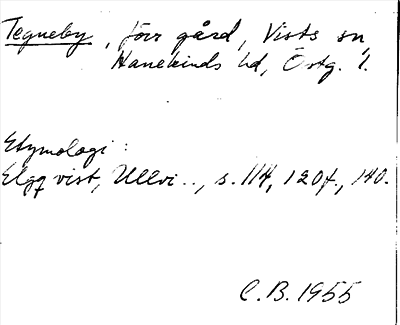 Tegneby, förr gård, Vists sn,
Hanekinds hd, Östg. l.
Etymologi:
Elgqvist, Ullvi.., s. 114, 120f., 140.
C.B. 1955